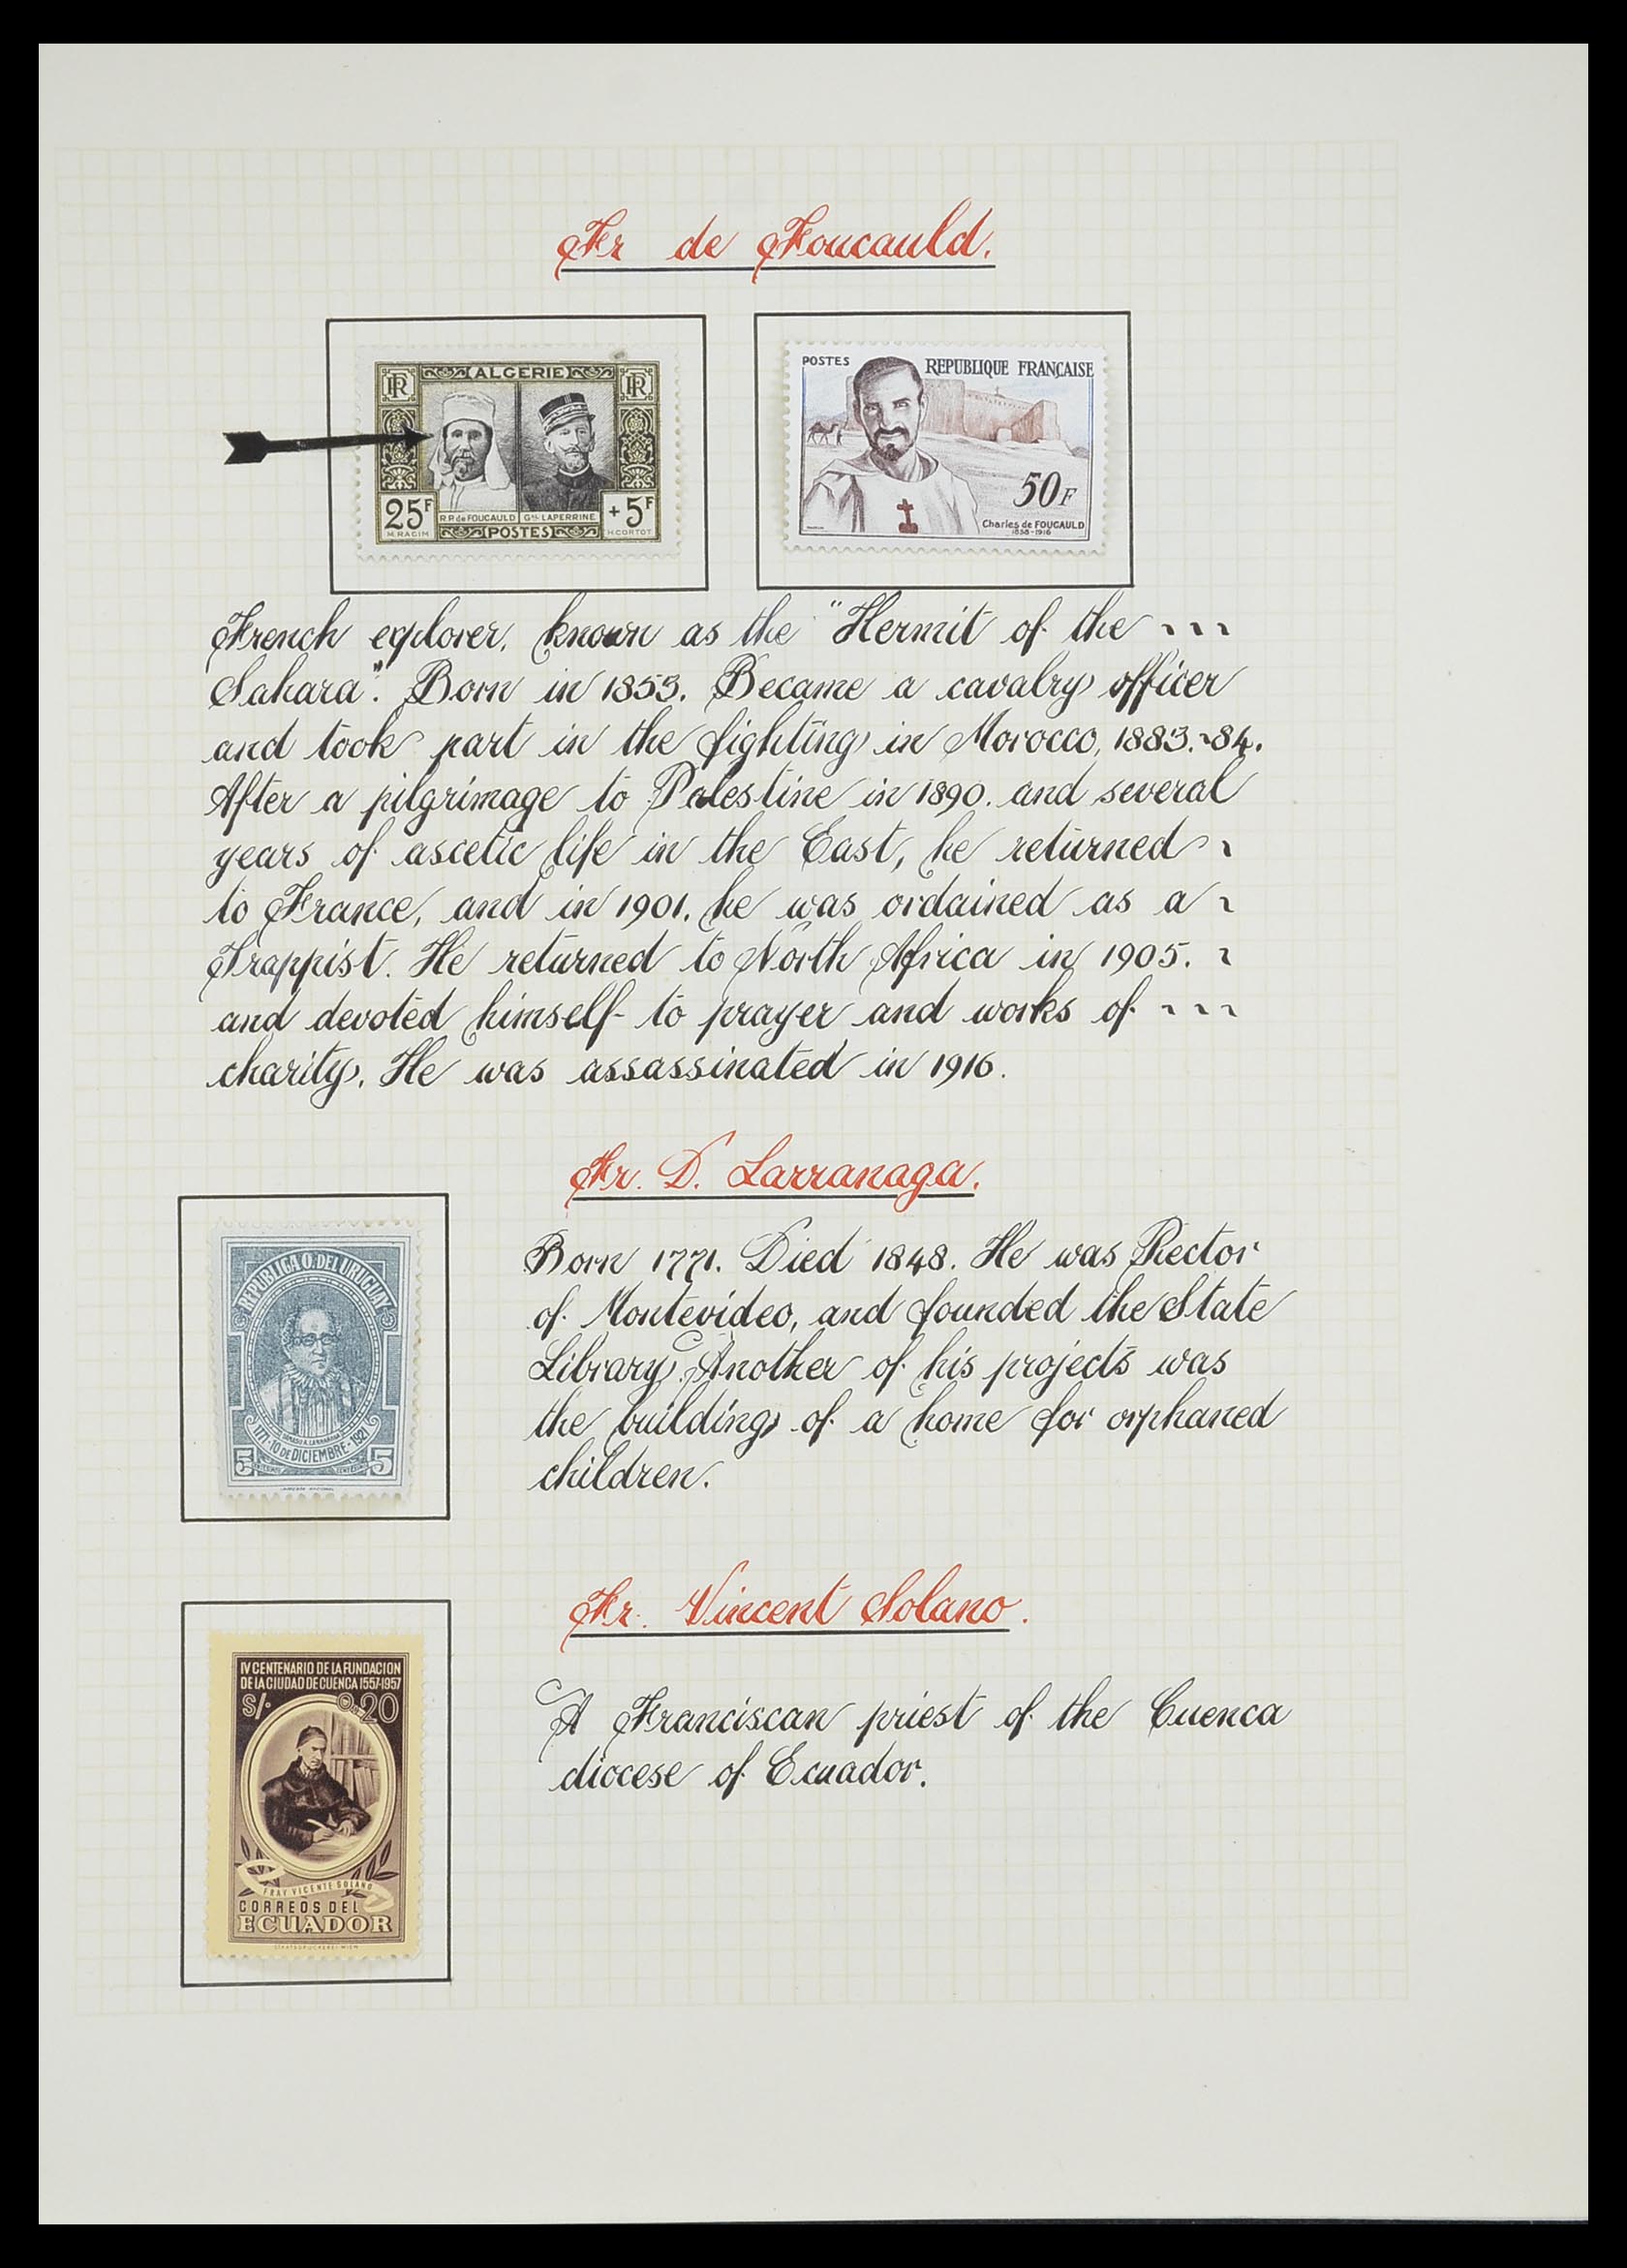 Fr de Foucauld.
ALGERIE
RF RF
25F R.P. de FOUCAULD Gal LAPERRINE +5F
M.RACIM POSTES H.CORTOT
POSTES REPUBLIQUE FRANÇAISE
50F
Charles de FOUCAULD
1858-1916
French explorer, known as the "Hermit of the
Sahara". Born in 1853. Became a cavalry officer
and took part in the fighting in Morocco, 1883.-84.
After a pilgrimage to Palestine in 1890. and several
years of ascetic life in the East, he returned
to France, and in 1901. he was ordained as a
Trappist. He returned to North Africa in 1905.
and devoted himself to prayer and works of
charity. He was assassinated in 1916.
Fr. D. Larranaga.
REPUBLICA O. DEL URUGUAY
DAMASO A. LARRAÑAGA
1771-10 DE DICIEMBRE-1921
5 5
Born 1771. Died 1848. He was Rector
of Montevideo, and founded the State
Library. Another of his projects was
the building of a home for orphaned
children.
Fr. Vincent Solano.
IV CENTENARIO DE LA FUNDACION
DE LA CIUDAD DE CUENCA 1557-1957
S/. 0.20
FRAY VICENTE SOLANO
CORREOS DEL
ECUADOR
STAATSDRUCKEREI-WIEN
A Franciscan priest of the Cuenca
diocese of Ecuador.